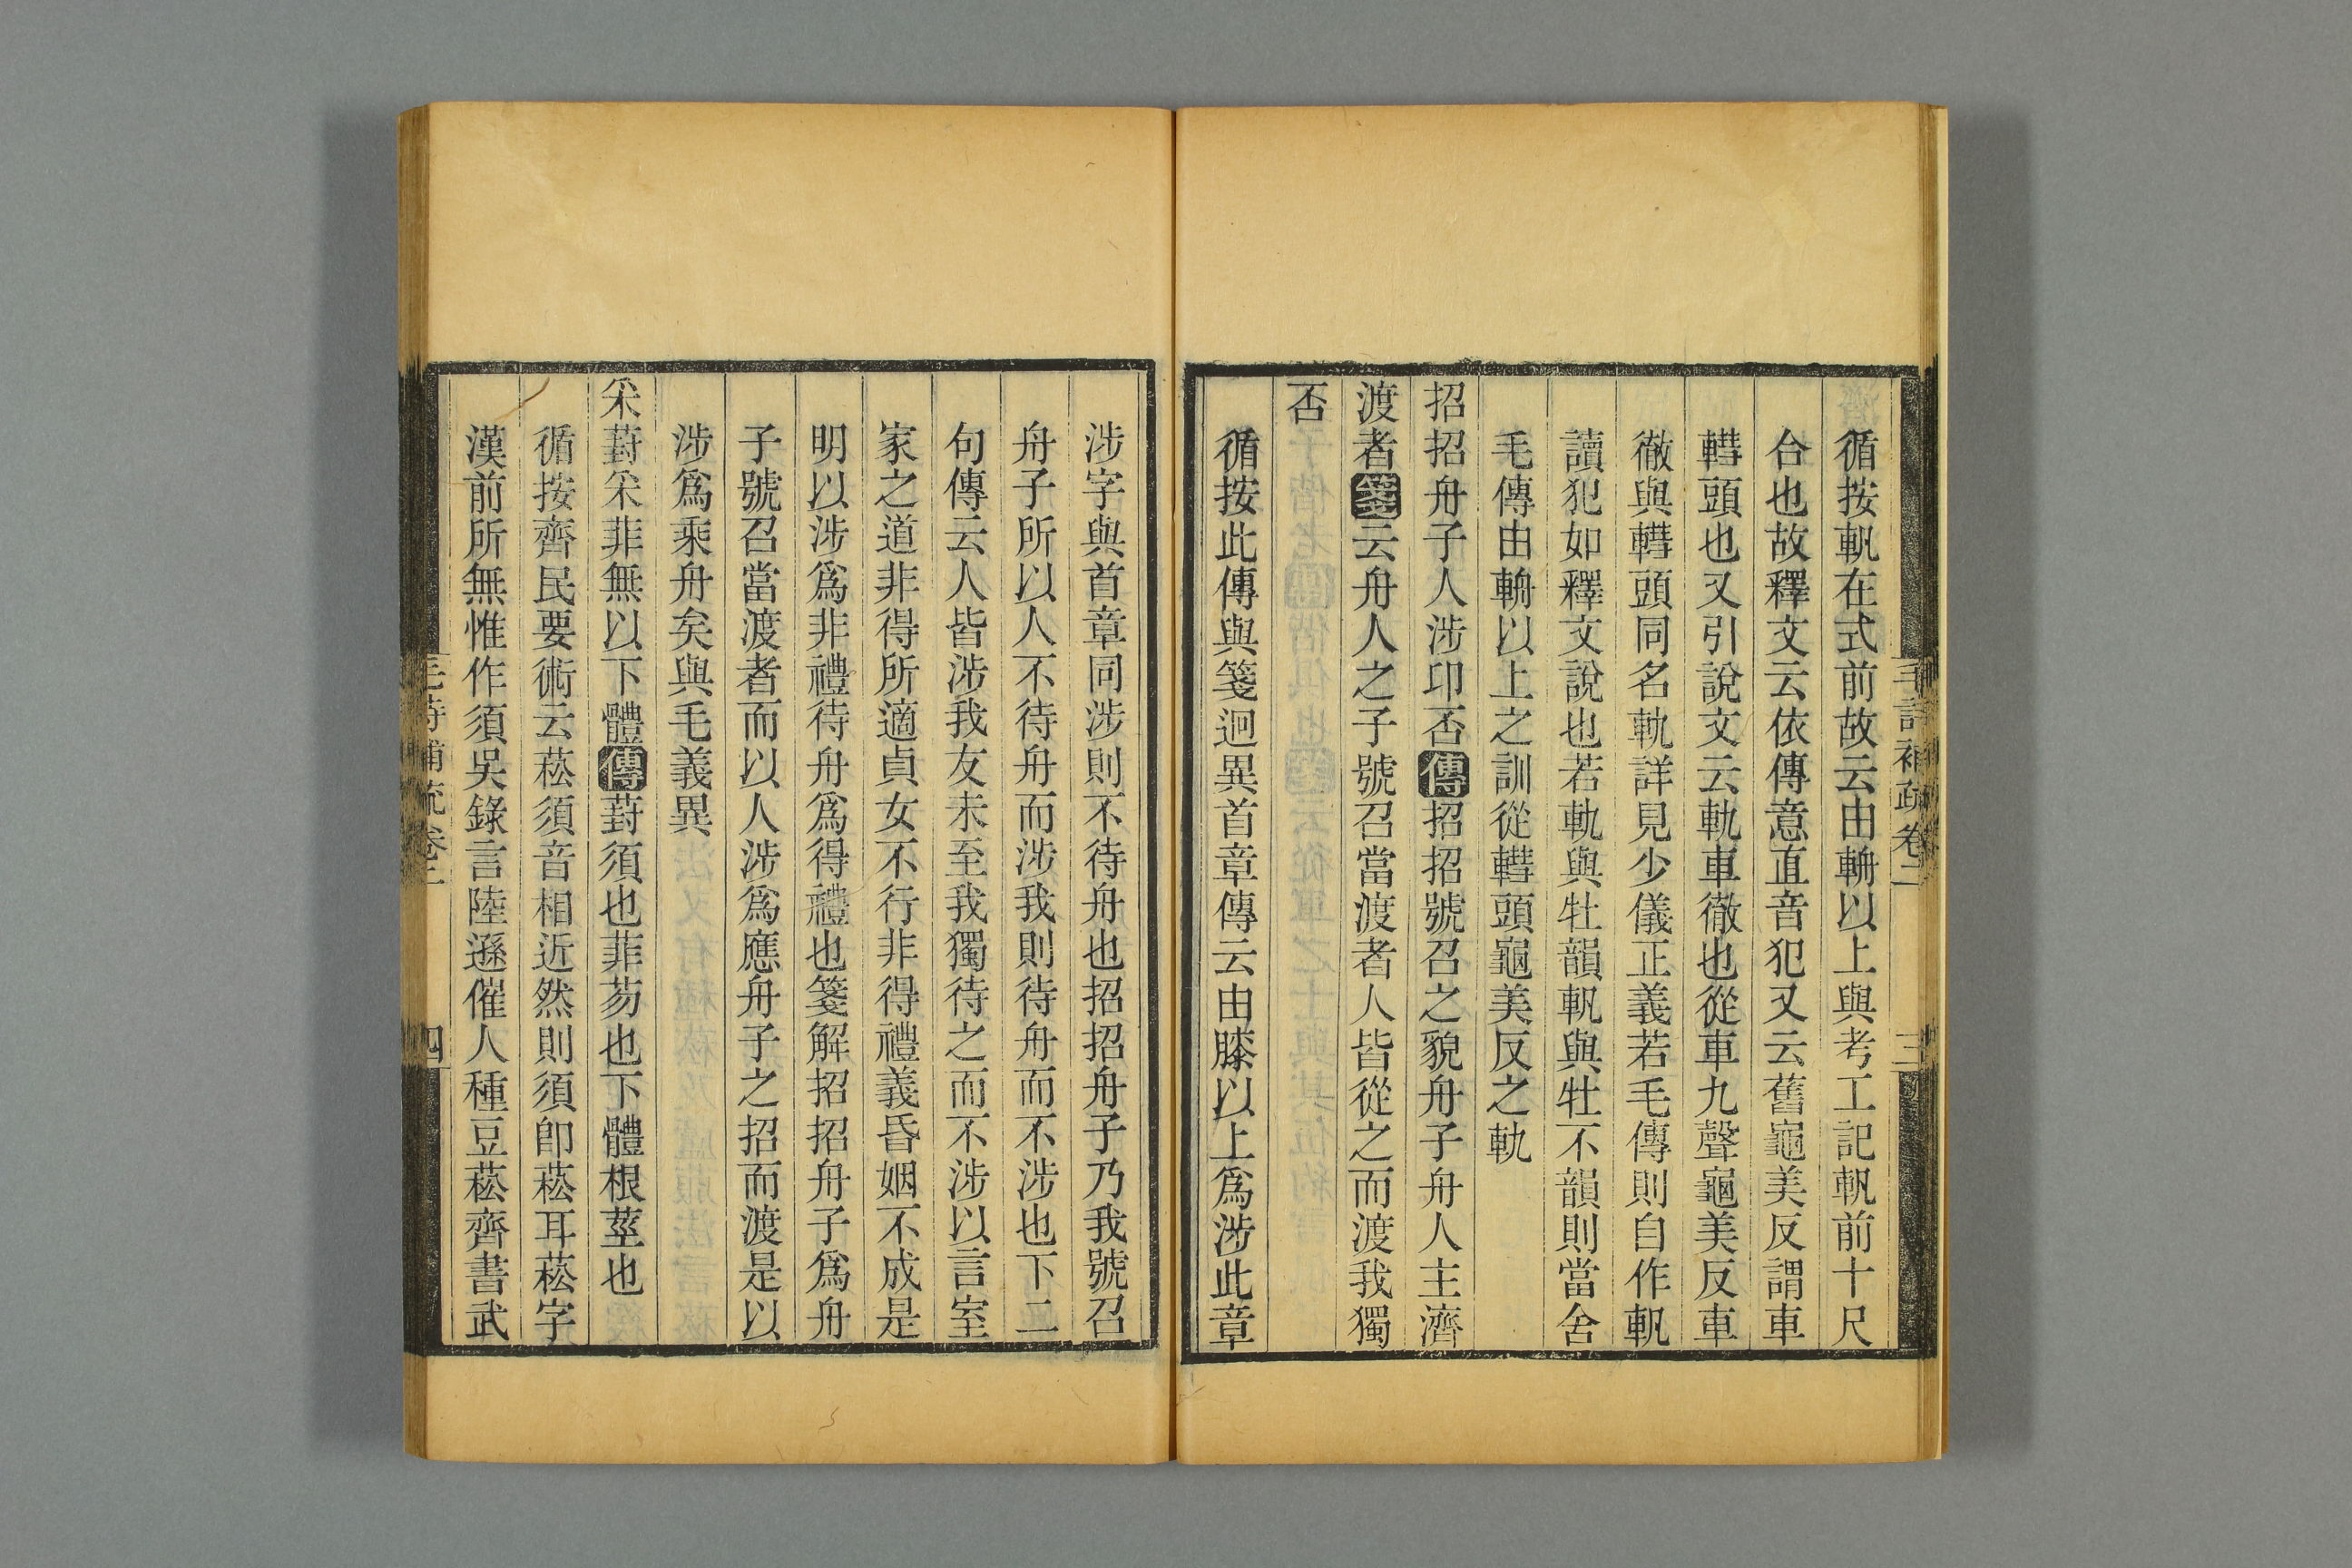 毛詩補疏卷二 三
循按軓在式前故云由輈以上與考工記軓前十尺
合也故釋文云依傳意直音犯又云舊龜美反謂車
轊頭也又引說文云軌車徹也從車九聲龜美反車
徹與轊頭同名軌詳見少儀正義若毛傳則自作軓
讀犯如釋文說也若軌與牡韻軓與牡不韻則當舍
毛傳由輈以上之訓從轊頭龜美反之軌
招招舟子人涉卬否傳招招號召之貌舟子舟人主濟
渡者箋云舟人之子號召當渡者人皆從之而渡我獨
否
循按此傳與箋迥異首章傳云由膝以上爲涉此章
涉字與首章同涉則不待舟也招招舟子乃我號召
舟子所以人不待舟而涉我則待舟而不涉也下二
句傳云人皆涉我友未至我獨待之而不涉以言室
家之道非得所適貞女不行非得禮義昏姻不成是
明以涉爲非禮待舟爲得禮也箋解招招舟子爲舟
子號召當渡者而以人涉爲應舟子之招而渡是以
涉爲乘舟矣與毛義異
采葑采菲無以下體傳葑須也菲芴也下體根莖也
循按齊民要術云菘須音相近然則須卽菘耳菘字
漢前所無惟作須吳錄言陸遜催人種豆菘齊書武
毛詩補疏卷二 四